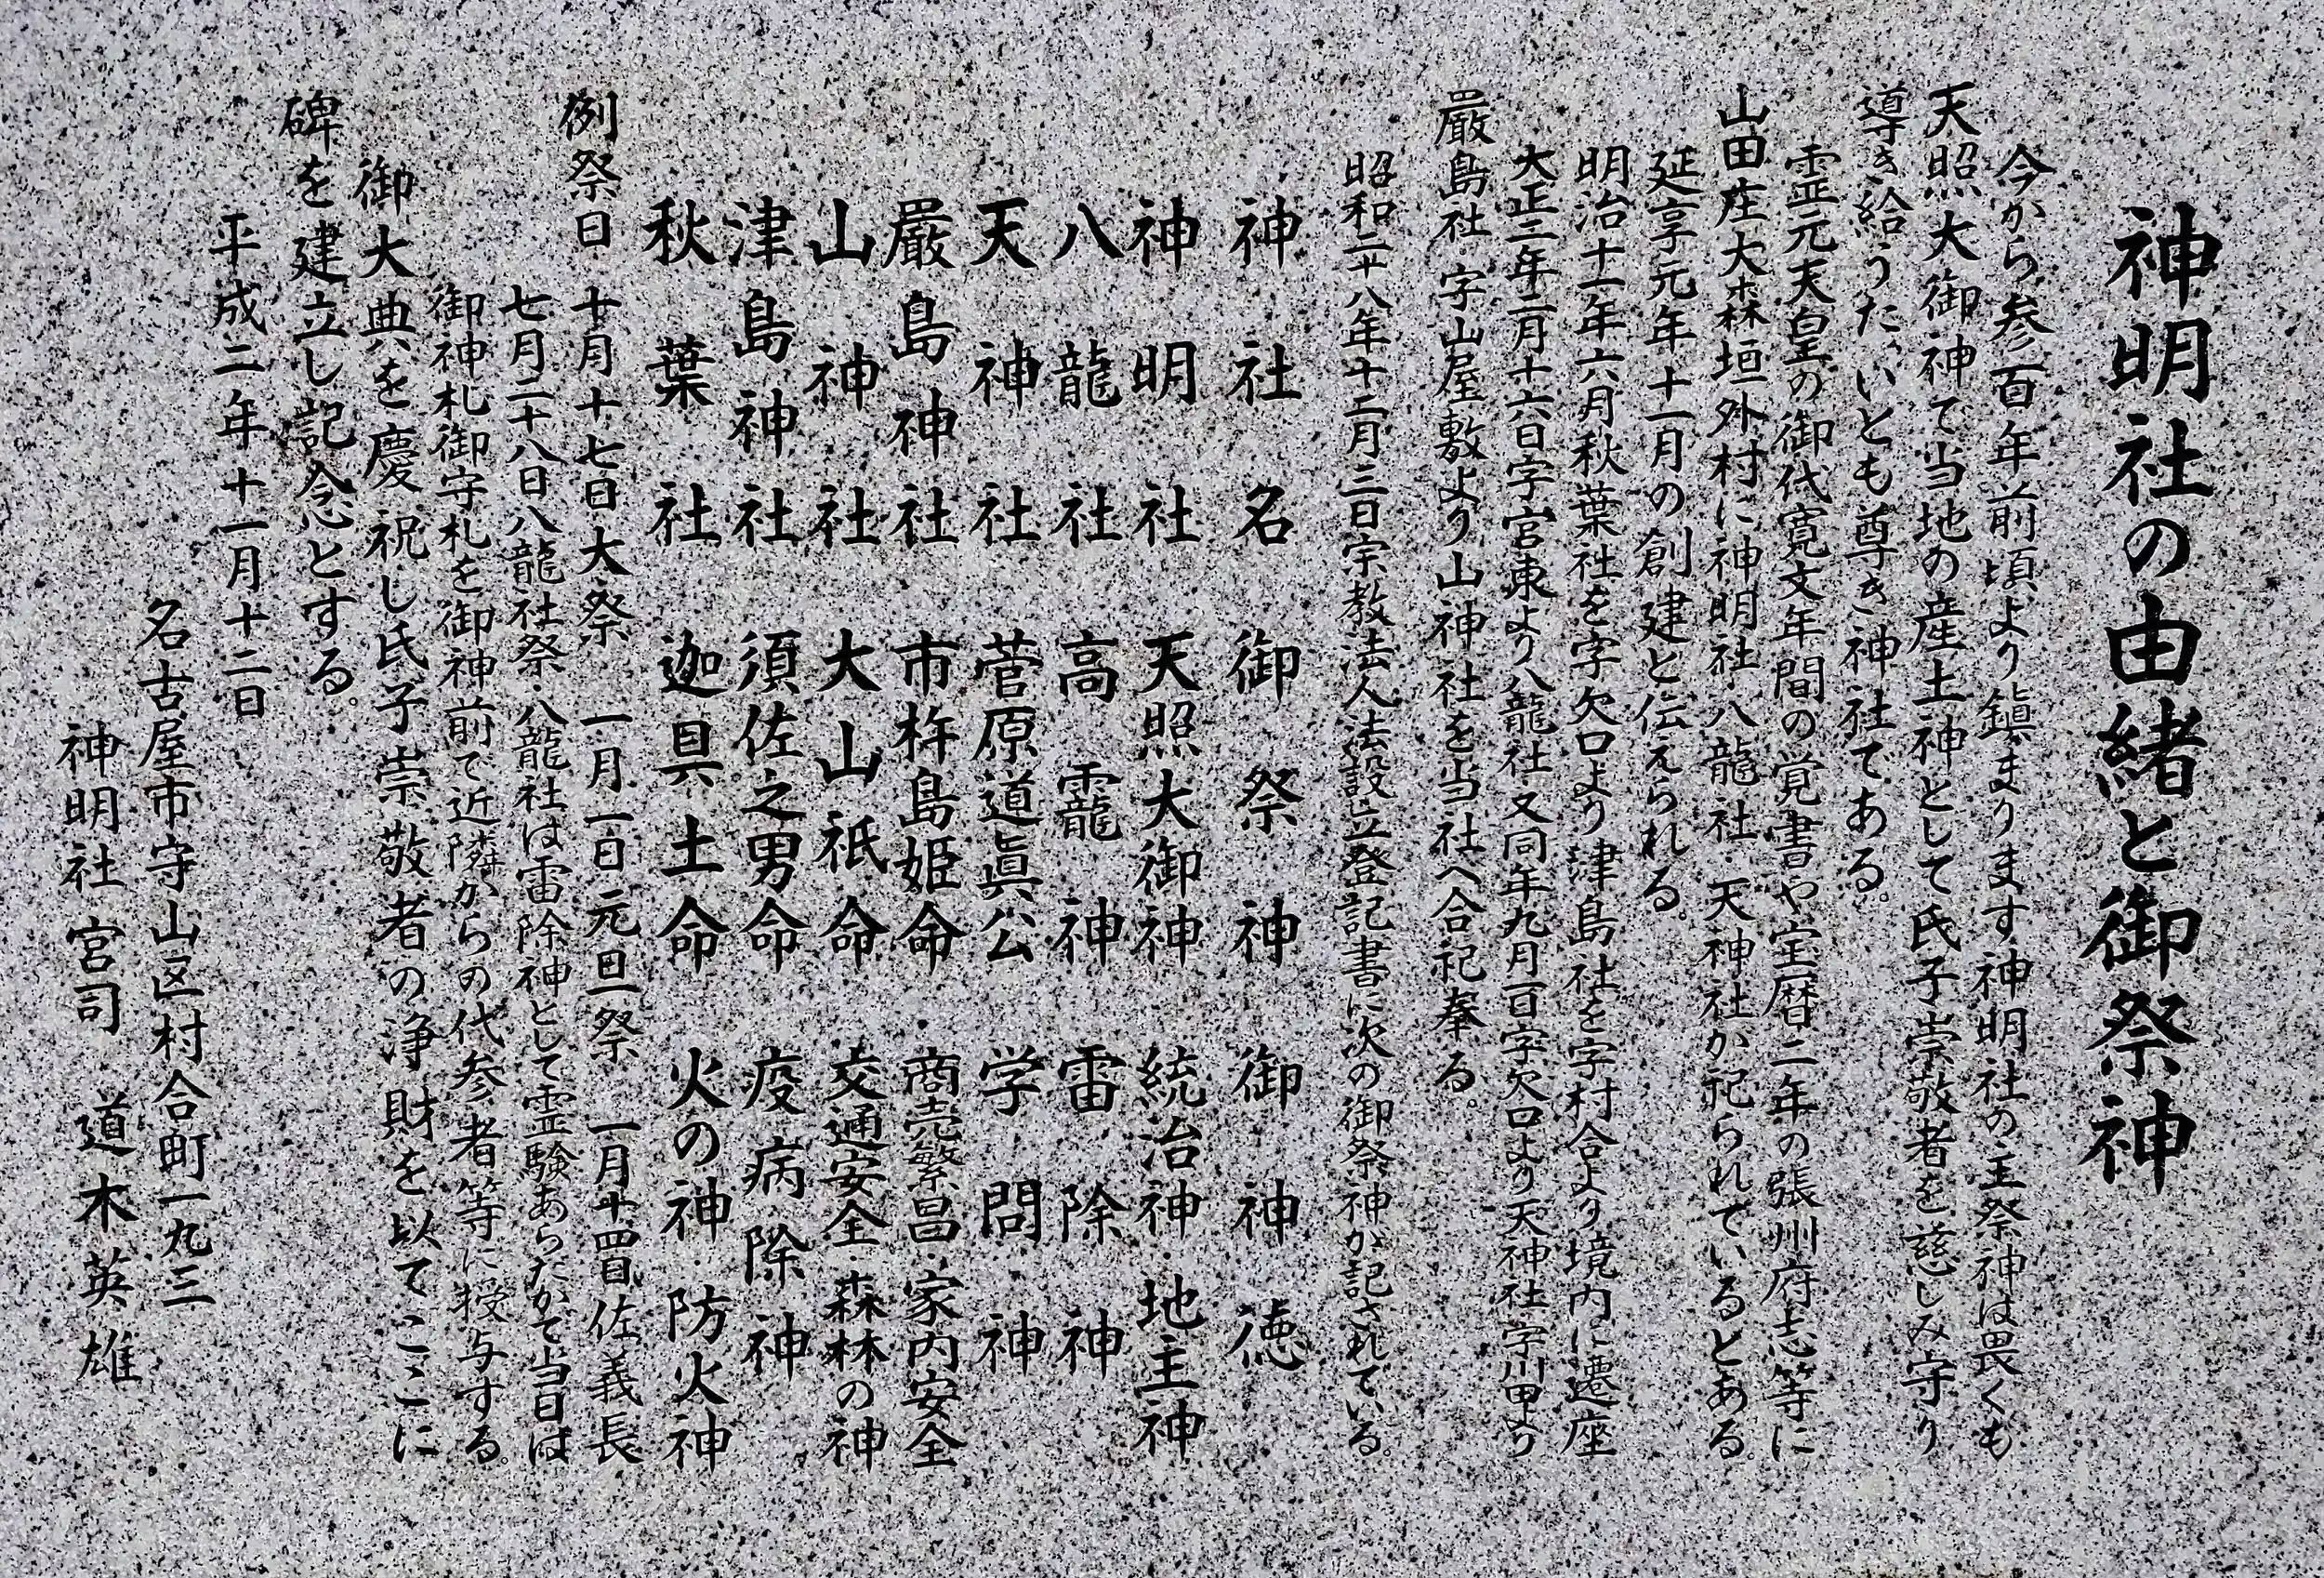 神明社の由緒と御祭神
今から参百年前頃より鎮まります神明社の主祭神は畏くも
天照大御神で当地の産土神として氏子崇敬者を慈しみ守り
導き給うたいとも尊き神社である。
霊元天皇の御代寛文年間の覚書や宝暦二年の張州府志等に
山田庄大森垣外村に神明社・八龍社・天神社が祀られているとある。
延享元年十一月の創建と伝えられる。
明治十一年六月秋葉社を字欠口より津島社を字村合より境内に遷座
大正三年二月十六日字宮東より八龍社又同年九月一日字欠口より天神社字川田より
厳島社・字山屋敷より山神社を当社へ合祀奉る。
昭和二十八年十二月三日宗教法人法設立登記書に次の御祭神が記されている。
神社名 御祭神 御神徳
神明社 天照大御神 統治神・地主神
八龍社 高龗神 雷除神
天神社 菅原道眞公 学問神
厳島神社 市杵島姫命 商売繁昌・家内安全
山神社 大山祇命 交通安全・森林の神
津島神社 須佐之男命 疫病除神
秋葉社 迦具土命 火の神・防火神
例祭日 十月十七日大祭 一月一日元旦祭 一月十四日佐義長
七月二十八日八龍社祭・八龍社は雷除神として霊験あらたかで当日は
御神札御守札を御神前で近隣からの代参者等に授与する。
御大典を慶祝し氏子崇敬者の浄財を以てここに
碑を建立し記念とする。
平成二年十一月十二日
名古屋市守山区村合町一九三
神明社 宮司 道木英雄